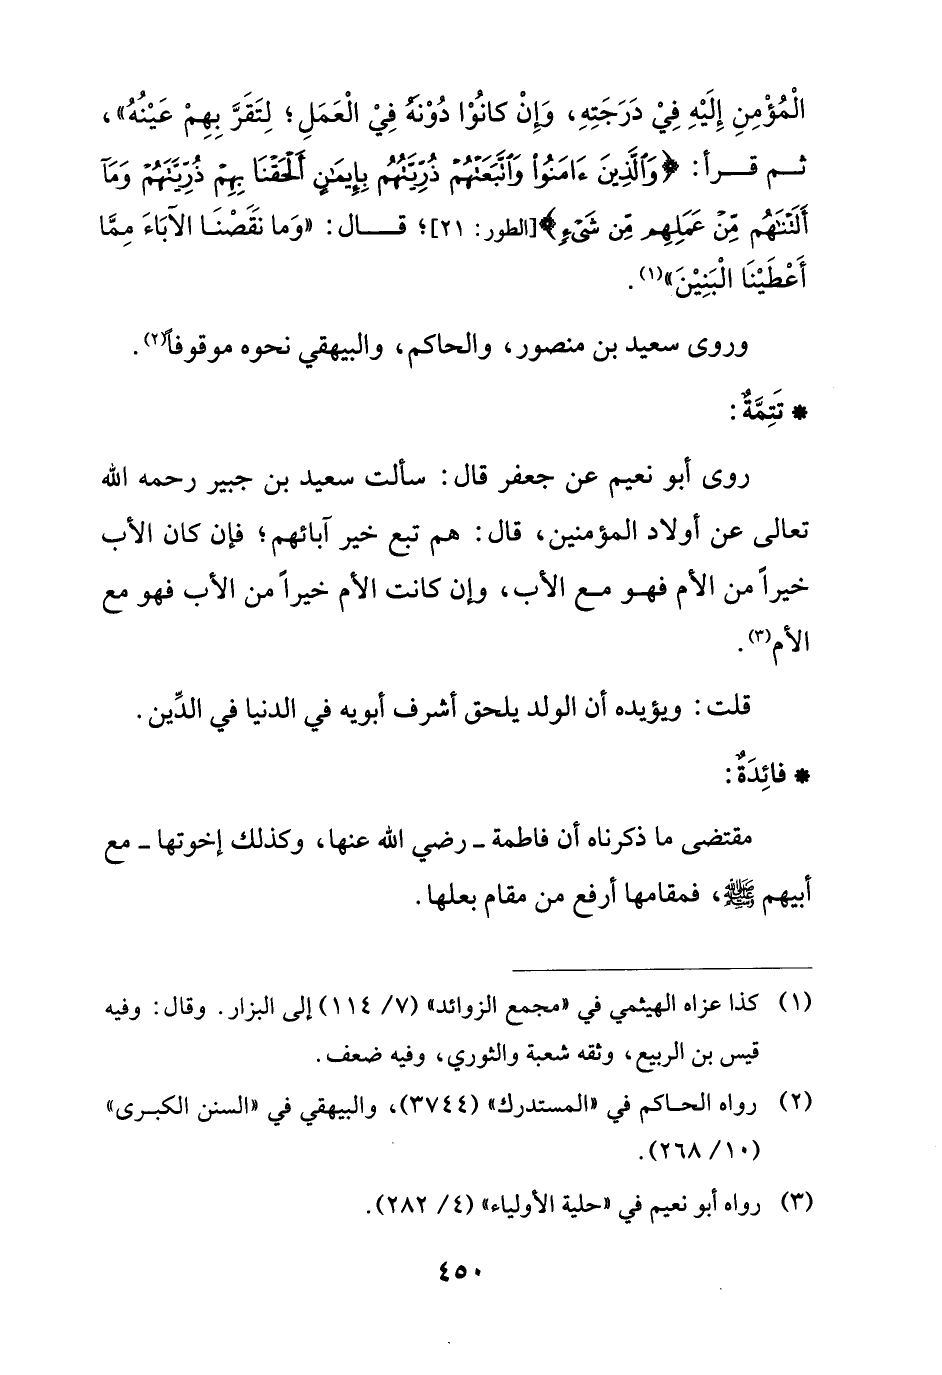 الْمُؤْمِنِ إِلَيْهِ فِيْ دَرَجَتِهِ، وَإِنْ كانُوْا دُوْنَهُ فِيْ الْعَمَلِ؛ لِتَقَرَّ بِهِمْ عَيْنُهُ»،
ثم قرأ: ﴿وَٱلَّذِينَ ءَامَنُوا۟ وَٱتَّبَعَتْهُمْ ذُرِّيَّتُهُم بِإِيمَٰنٍ أَلْحَقْنَا بِهِمْ ذُرِّيَّتَهُمْ وَمَآ
أَلَتْنَٰهُم مِّنْ عَمَلِهِم مِّن شَىْءٍ﴾[الطور: ٢١]؛ قال: «وَما نَقَصْنَا الآبَاءَ مِمَّا
أَعْطَيْنَا الْبَنِيْنَ»(١).
وروى سعيد بن منصور، والحاكم، والبيهقي نحوه موقوفاً(٢).
* تَتِمَّةٌ:
روى أبو نعيم عن جعفر قال: سألت سعيد بن جبير رحمه الله
تعالى عن أولاد المؤمنين، قال: هم تبع خير آبائهم؛ فإن كان الأب
خيراً من الأم فهو مع الأب، وإن كانت الأم خيراً من الأب فهو مع
الأم(٣).
قلت: ويؤيده أن الولد يلحق أشرف أبويه في الدنيا في الدِّين.
* فائِدَةٌ:
مقتضى ما ذكرناه أن فاطمة ـ رضي الله عنها، وكذلك إخوتها ـ مع
أبيهم ﷺ، فمقامها أرفع من مقام بعلها.
(١) كذا عزاه الهيثمي في «مجمع الزوائد» (٧/ ١١٤) إلى البزار. وقال: وفيه
قيس بن الربيع، وثقه شعبة والثوري، وفيه ضعف.
(٢) رواه الحاكم في «المستدرك» (٣٧٤٤)، والبيهقي في «السنن الكبرى»
(١٠/ ٢٦٨).
(٣) رواه أبو نعيم في «حلية الأولياء» (٤/ ٢٨٢).
٤٥٠